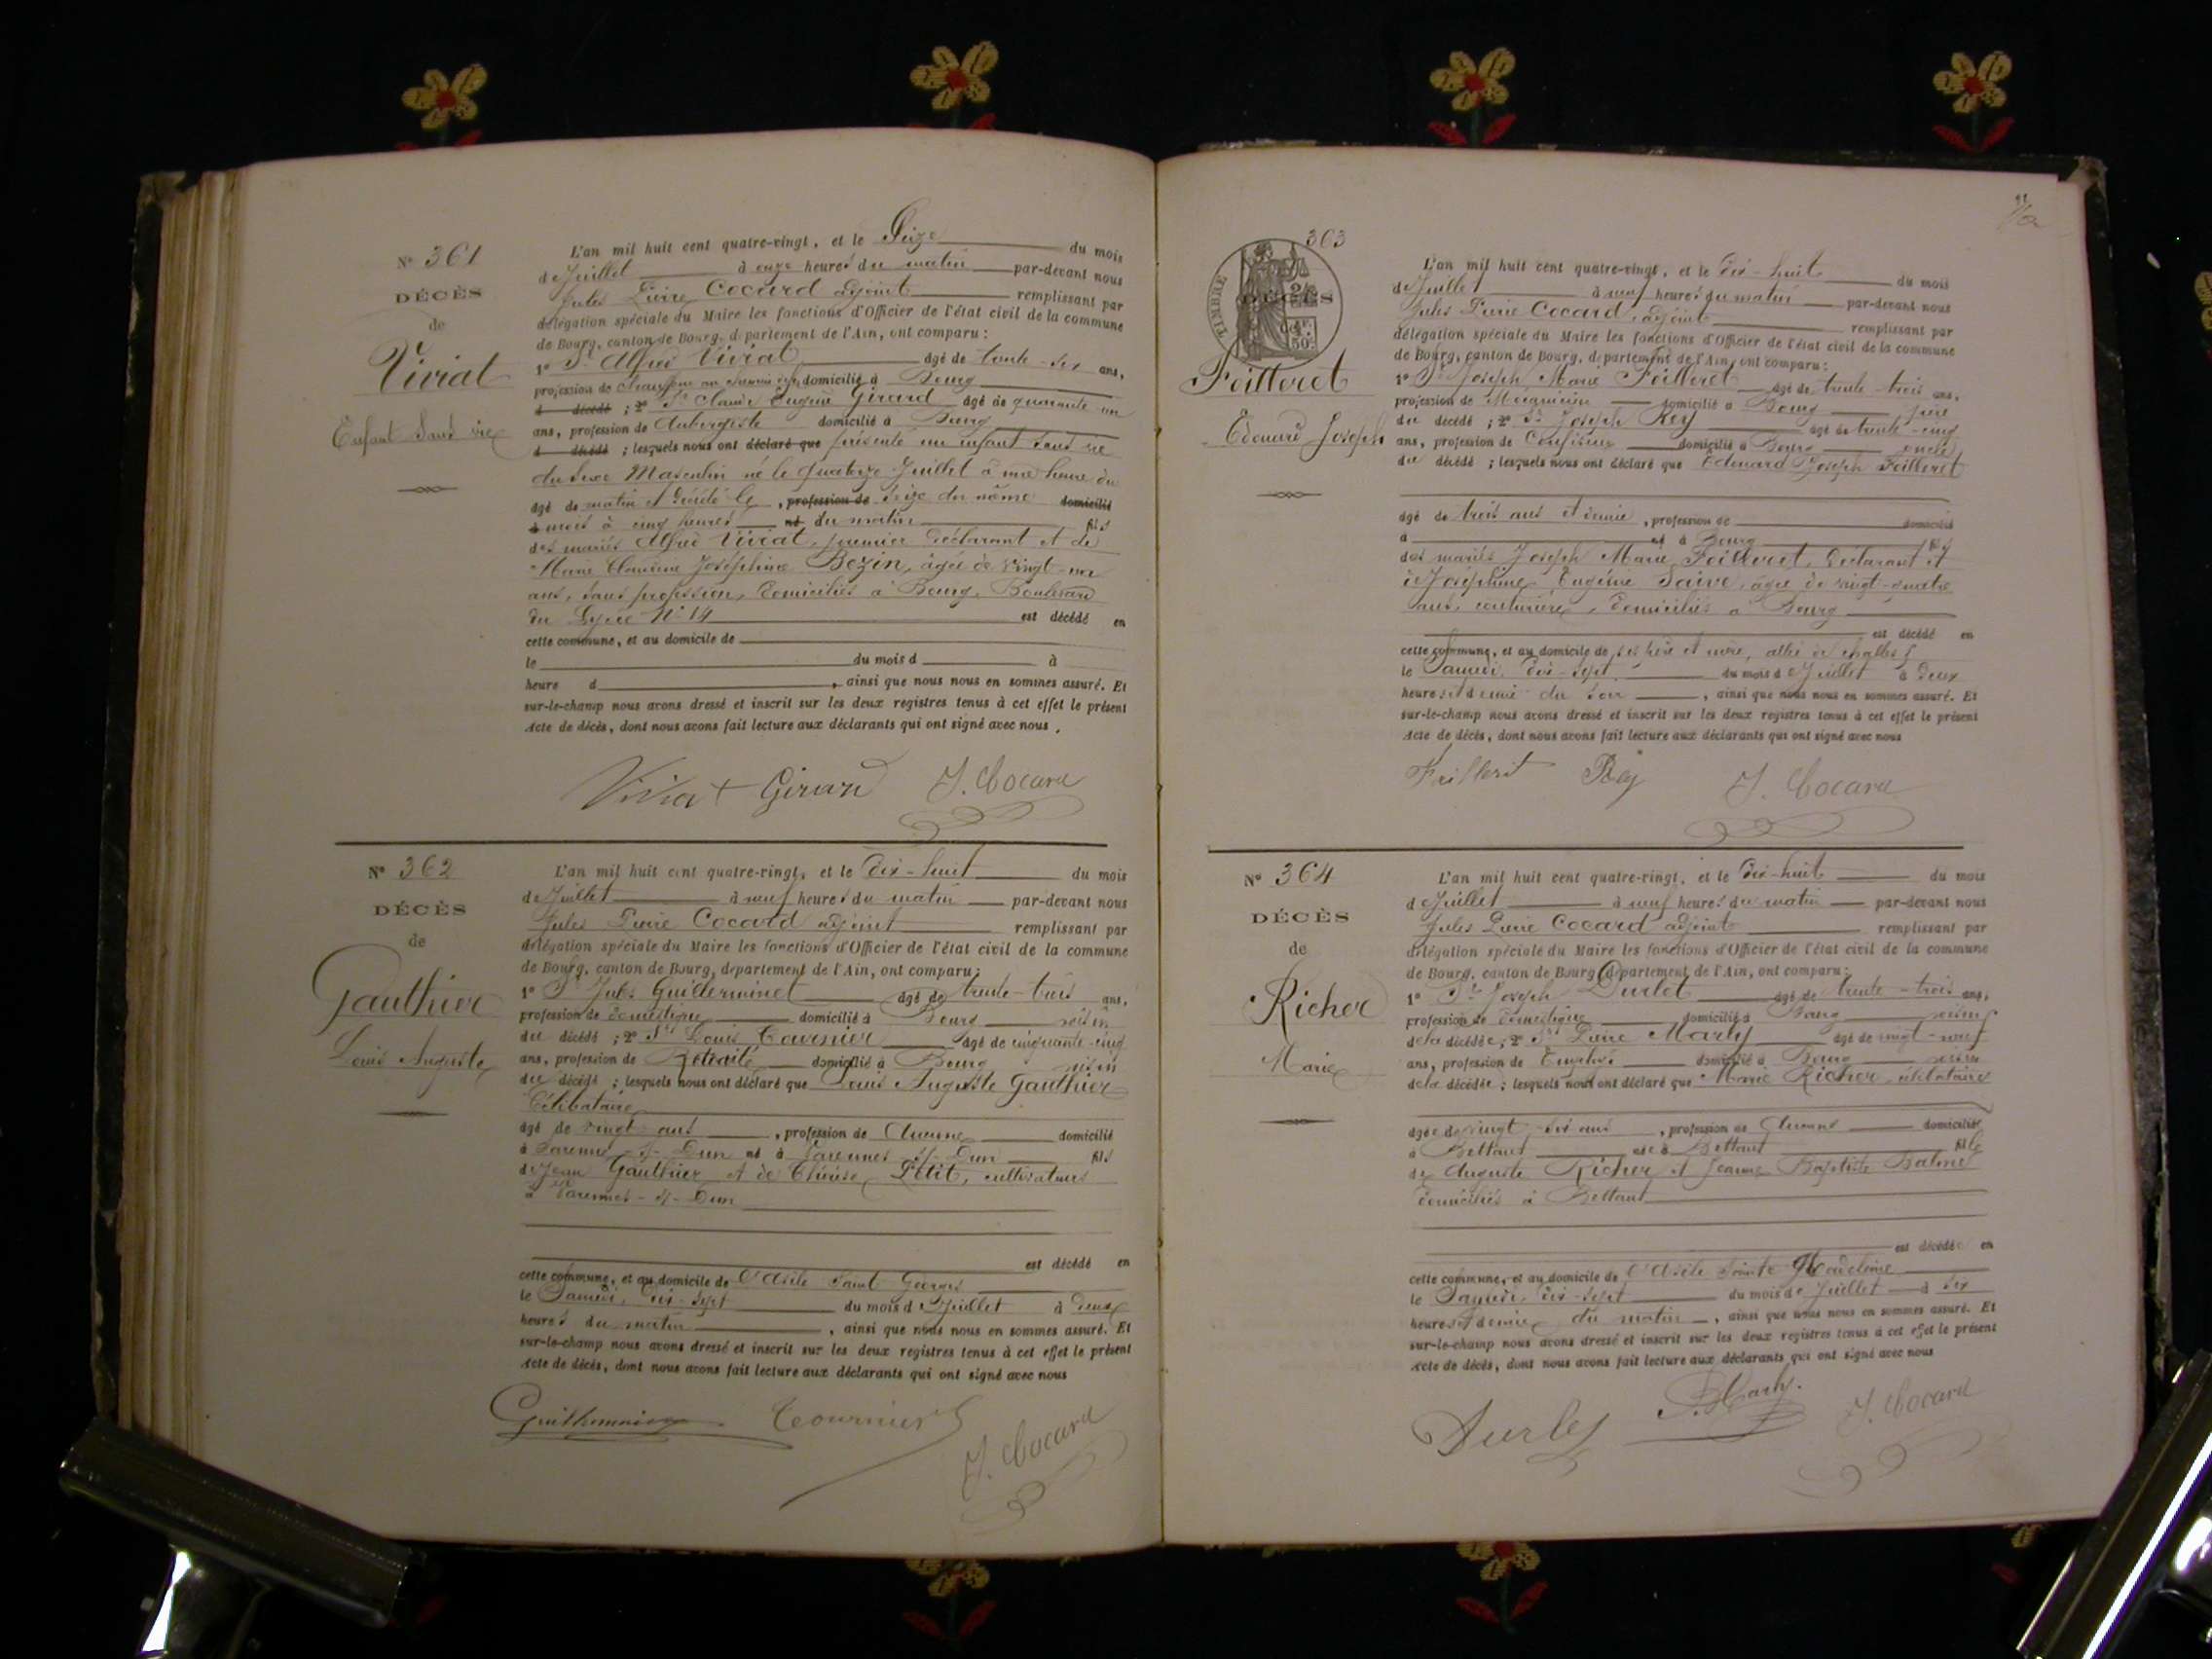 N° 361
DÉCÈS
de
Viviat
Enfant sans vie
L'an mil huit cent quatre-vingt, et le Seize du mois
de Juillet à onze heures du matin par-devant nous
Jules Pierre Cocard adjoint remplissant par
délégation spéciale du Maire les fonctions d'Officier de l'état civil de la commune
de Bourg, canton de Bourg, département de l'Ain, ont comparu :
1° Sr Alfred Viviat âgé de trente-six ans,
profession de domicilié à Bourg
d décédé ; 2° Sr Claude Eugène Girard âgé de quarante un
ans, profession de Aubergiste domicilié à Bourg
d décédé ; lesquels nous ont déclaré que présenté un enfant sans vie
du sexe Masculin né le quatorze Juillet à une heure du
âgé de matin et décédé le , profession de seize du même domicilié
à mois à cinq heures né du matin fils
des mariés Alfred Viviat, premier déclarant et de
Marie Claudine Joséphine Bozin, âgée de vingt-un
ans, sans profession, domiciliés à Bourg, Boulevard
du Lycée N° 14 est décédé en
cette commune, et au domicile de
le du mois d à
heure d , ainsi que nous nous en sommes assuré. Et
sur-le-champ nous avons dressé et inscrit sur les deux registres tenus à cet effet le présent
Acte de décès, dont nous avons fait lecture aux déclarants qui ont signé avec nous.
Viviat Girard J. Cocard
N° 362
DÉCÈS
de
Gauthier
Louis Auguste
L'an mil huit cent quatre-vingt, et le dix-huit du mois
de Juillet à neuf heures du matin par-devant nous
Jules Pierre Cocard adjoint remplissant par
délégation spéciale du Maire les fonctions d'Officier de l'état civil de la commune
de Bourg, canton de Bourg, département de l'Ain, ont comparu :
1° Sr Jules Guillerminet âgé de trente-trois ans,
profession de domestique domicilié à Bourg voisin
du décédé ; 2° Sr Louis Tournier âgé de cinquante-cinq
ans, profession de Retraité domicilié à Bourg voisin
du décédé ; lesquels nous ont déclaré que Louis Auguste Gauthier
Célibataire
âgé de vingt ans , profession de Aucune domicilié
à Varennes-s/-Dun né à Varennes s/-Dun fils
de Jean Gauthier et de Thérèse Petit, cultivateurs
à Varennes-s/-Dun
est décédé en
cette commune, et au domicile de l'Asile Saint Georges
le Samedi, dix-sept du mois de Juillet à deux
heures du matin , ainsi que nous nous en sommes assuré. Et
sur-le-champ nous avons dressé et inscrit sur les deux registres tenus à cet effet le présent
Acte de décès, dont nous avons fait lecture aux déclarants qui ont signé avec nous
Tournier J. Cocard
363
TIMBRE
DÉCÈS
Foilleret
Edouard Joseph
L'an mil huit cent quatre-vingt, et le dix-huit du mois
de Juillet à neuf heures du matin par-devant nous
Jules Pierre Cocard, adjoint remplissant par
délégation spéciale du Maire les fonctions d'Officier de l'état civil de la commune
de Bourg, canton de Bourg, département de l'Ain, ont comparu :
1° Sr Joseph Marie Foilleret âgé de trente-trois ans,
profession de Mécanicien domicilié à Bourg père
du décédé ; 2° Sr Joseph Rey âgé de trente-cinq
ans, profession de Confiseur domicilié à Bourg oncle
du décédé ; lesquels nous ont déclaré que Edouard Joseph Foilleret
âgé de trois ans et demie , profession de domicilié
à né à Bourg fils
des mariés Joseph Marie Foilleret, déclarant et
de Joséphine Eugénie Saive, âgée de vingt-quatre
ans, couturière, domiciliés à Bourg
est décédé en
cette commune, et au domicile de ses père et mère, allée de Challes
le Samedi, dix-sept du mois de Juillet à deux
heures et demie du soir , ainsi que nous nous en sommes assuré. Et
sur-le-champ nous avons dressé et inscrit sur les deux registres tenus à cet effet le présent
Acte de décès, dont nous avons fait lecture aux déclarants qui ont signé avec nous
Foilleret Rey J. Cocard
N° 364
DÉCÈS
de
Richer
Marie
L'an mil huit cent quatre-vingt, et le dix-huit du mois
de Juillet à neuf heures du matin par-devant nous
Jules Pierre Cocard adjoint remplissant par
délégation spéciale du Maire les fonctions d'Officier de l'état civil de la commune
de Bourg, canton de Bourg, département de l'Ain, ont comparu :
1° Sr Joseph Durlet âgé de trente-trois ans,
profession de domestique domicilié à Bourg voisin
de la décédée, 2° Sr Pierre Marly âgé de vingt-neuf
ans, profession de Employé domicilié à Bourg voisin
de la décédée ; lesquels nous ont déclaré que Marie Richer, célibataire
âgée de vingt-six ans , profession de Aucune domiciliée
à Bettant née à Bettant fille
de Auguste Richer et Jeanne Baptiste
domiciliés à Bettant
est décédée en
cette commune, et au domicile de l'Asile Sainte Madeleine
le Samedi, dix-sept du mois de Juillet à six
heures et demie du matin , ainsi que nous nous en sommes assuré. Et
sur-le-champ nous avons dressé et inscrit sur les deux registres tenus à cet effet le présent
Acte de décès, dont nous avons fait lecture aux déclarants qui ont signé avec nous
Durlet P. Marly. J. Cocard